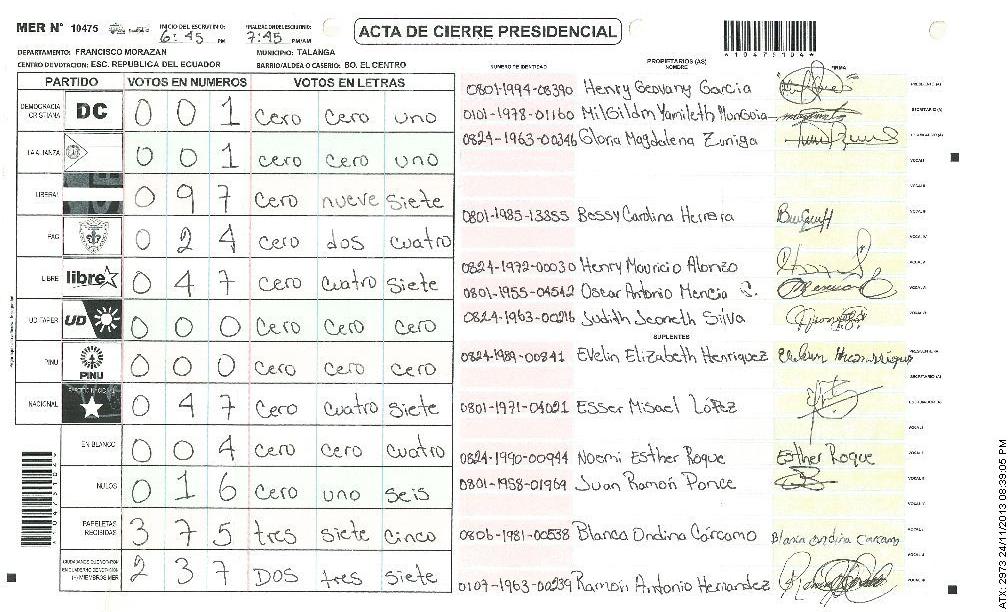 MER N° 10475
INICIO DEL ESCRUTINIO:
6:45 PM
FINALIZACION DEL ESCRUTINIO:
7:45 PM/AM
ACTA DE CIERRE PRESIDENCIAL
*10475104*
DEPARTAMENTO: FRANCISCO MORAZAN MUNICIPIO: TALANGA
CENTRO DE VOTACION: ESC. REPUBLICA DEL ECUADOR BARRIO/ALDEA O CASERIO: BO. EL CENTRO
PARTIDO VOTOS EN NUMEROS VOTOS EN LETRAS
DEMOCRACIA CRISTIANA DC 0 0 1 cero cero uno
LA ALIANZA 0 0 1 cero cero uno
LIBERAL 0 9 7 cero nueve siete
PAC 0 2 4 cero dos cuatro
LIBRE libre 0 4 7 cero cuatro siete
UD FAPER UD 0 0 0 cero cero cero
PINU PINU 0 0 0 cero cero cero
NACIONAL 0 4 7 cero cuatro siete
EN BLANCO 0 0 4 cero cero cuatro
NULOS 0 1 6 cero uno seis
PAPELETAS RECIBIDAS 3 7 5 tres siete cinco
(+) MIEMBROS MER 2 3 7 DOS tres siete
NUMERO DE IDENTIDAD PROPIETARIOS (AS) NOMBRE FIRMA
0801-1994-08390 Henry Geovany Garcia PRESIDENTE (A)
0101-1978-01160 Milgildm Yamileth Munguia SECRETARIO (A)
0824-1963-00346 Gloria Magdalena Zuniga
0801-1985-13855 Bessy Carolina Herrera
0824-1972-00030 Henry Mauricio Alonzo
0801-1955-04542 Oscar Antonio Mencia S.
0824-1963-00216 Judith Jeoneth Silva
SUPLENTES
0824-1989-00841 Evelin Elizabeth Henriquez
0801-1971-04021 Esser Misael López
0824-1990-00944 Noemi Esther Roque Esther Roque
0801-1958-01969 Juan Ramón Ponce
0806-1981-00538 Blanca Ondina Cárcamo Blanca Ondina Carcamo
0107-1963-00239 Ramón Antonio Hernandez
ATX: 2973 24/11/2013 08:39:05 PM